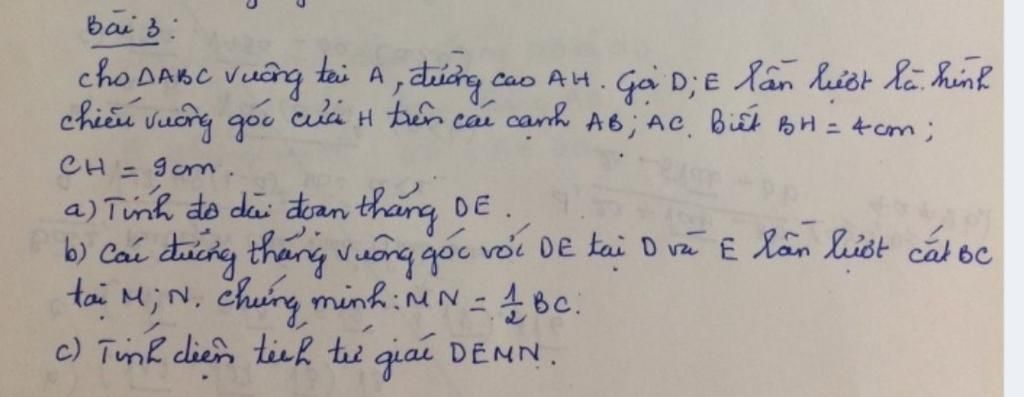 Bài 3:
Cho ΔABC vuông tại A, đường cao AH. Gọi D; E lần lượt là hình
chiếu vuông góc của H trên các cạnh AB; AC. Biết BH = 4cm;
CH = 9cm.
a) Tính độ dài đoạn thẳng DE.
b) Các đường thẳng vuông góc với DE tại D và E lần lượt cắt BC
tại M; N. Chứng minh: MN = 1/2 BC.
c) Tính diện tích tứ giác DEMN.